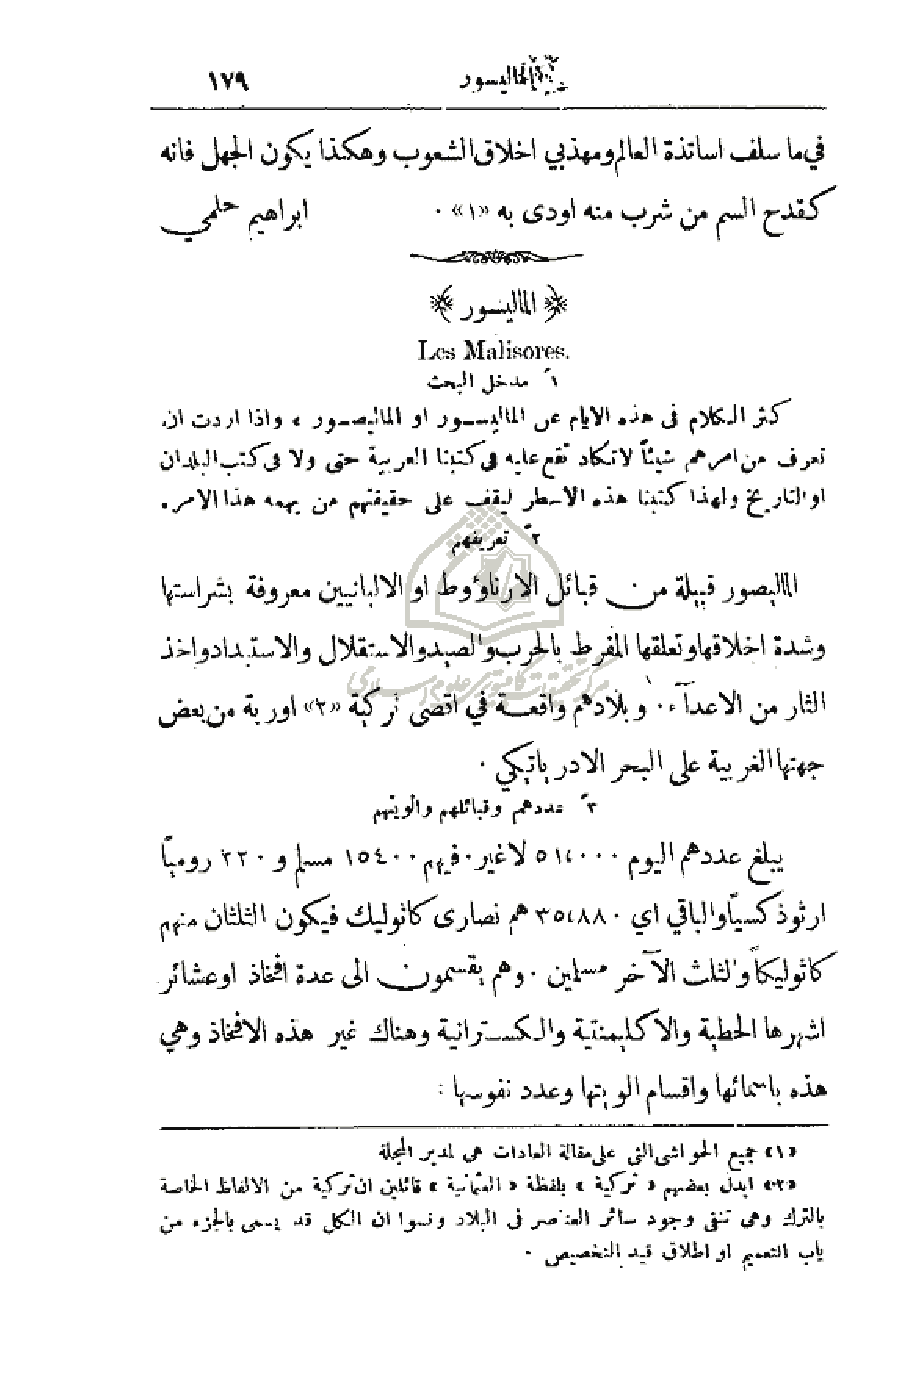 الماليسور ١٧٩
في ما سلف اساتذة العالم ومهذبي اخلاق الشعوب وهكذا يكون الجهل فانه
كقدح السم من شرب منه اودى به «١» · ابراهيم حلمي
﴿ الماليسور ﴾
Les Malisores.
١ً مدخل البحث
كثر الكلام فى هذه الايام عن الماليسور او الماليصور ، واذا اردت ان
تعرف من امرهم شيئاً لاتكاد تقع عليه فى كتبنا العربية حتى ولا فى كتب البلدان
او التاريخ ولهذا كتبنا هذه الاسطر ليقف على حقيقتهم من يهمه هذا الامر.
٢ً تعريفهم
الماليصور قبيلة من قبائل الارناؤوط او الالبانيين معروفة بشراستها
وشدة اخلاقها وتعلقها المفرط بالحرب والصيد والاستقلال والاستبداد واخذ
الثار من الاعدآء · وبلادهم واقعة في اقصى تركية «٢» اوربة من بعض
جهتها الغربية على البحر الادرياتيكي ·
٣ً عددهم وقبائلهم والويتهم
يبلغ عددهم اليوم ٥١،٠٠٠ لاغير · فيهم ١٥٤٠٠ مسلم و ٢٢٠ روميّا
ارثوذكسيّا والباقي اي ٣٥،٨٨٠ هم نصارى كاثوليك فيكون الثلثان منهم
كاثوليكاً والثلث الآخر مسلمين · وهم يقسمون الى عدة افخاذ او عشائر
اشهرها الحطية والاكليمنتية والكسترانية وهناك غير هذه الافخاذ وهي
هذه باسمائها واقسام الويتها وعدد نفوسها :
«١» جميع الحواشى التى على مقالة العادات هى لمدير المجلة
«٢» ابدل بعضهم « تركية » بلفظة « العثمانية » قائلين ان تركية من الالفاظ الخاصة
بالترك وهى تنفى وجود سائر العناصر فى البلاد ونسوا ان الكل قد يسمى بالجزء من
باب التعميم او اطلاق قيد التخصيص ·